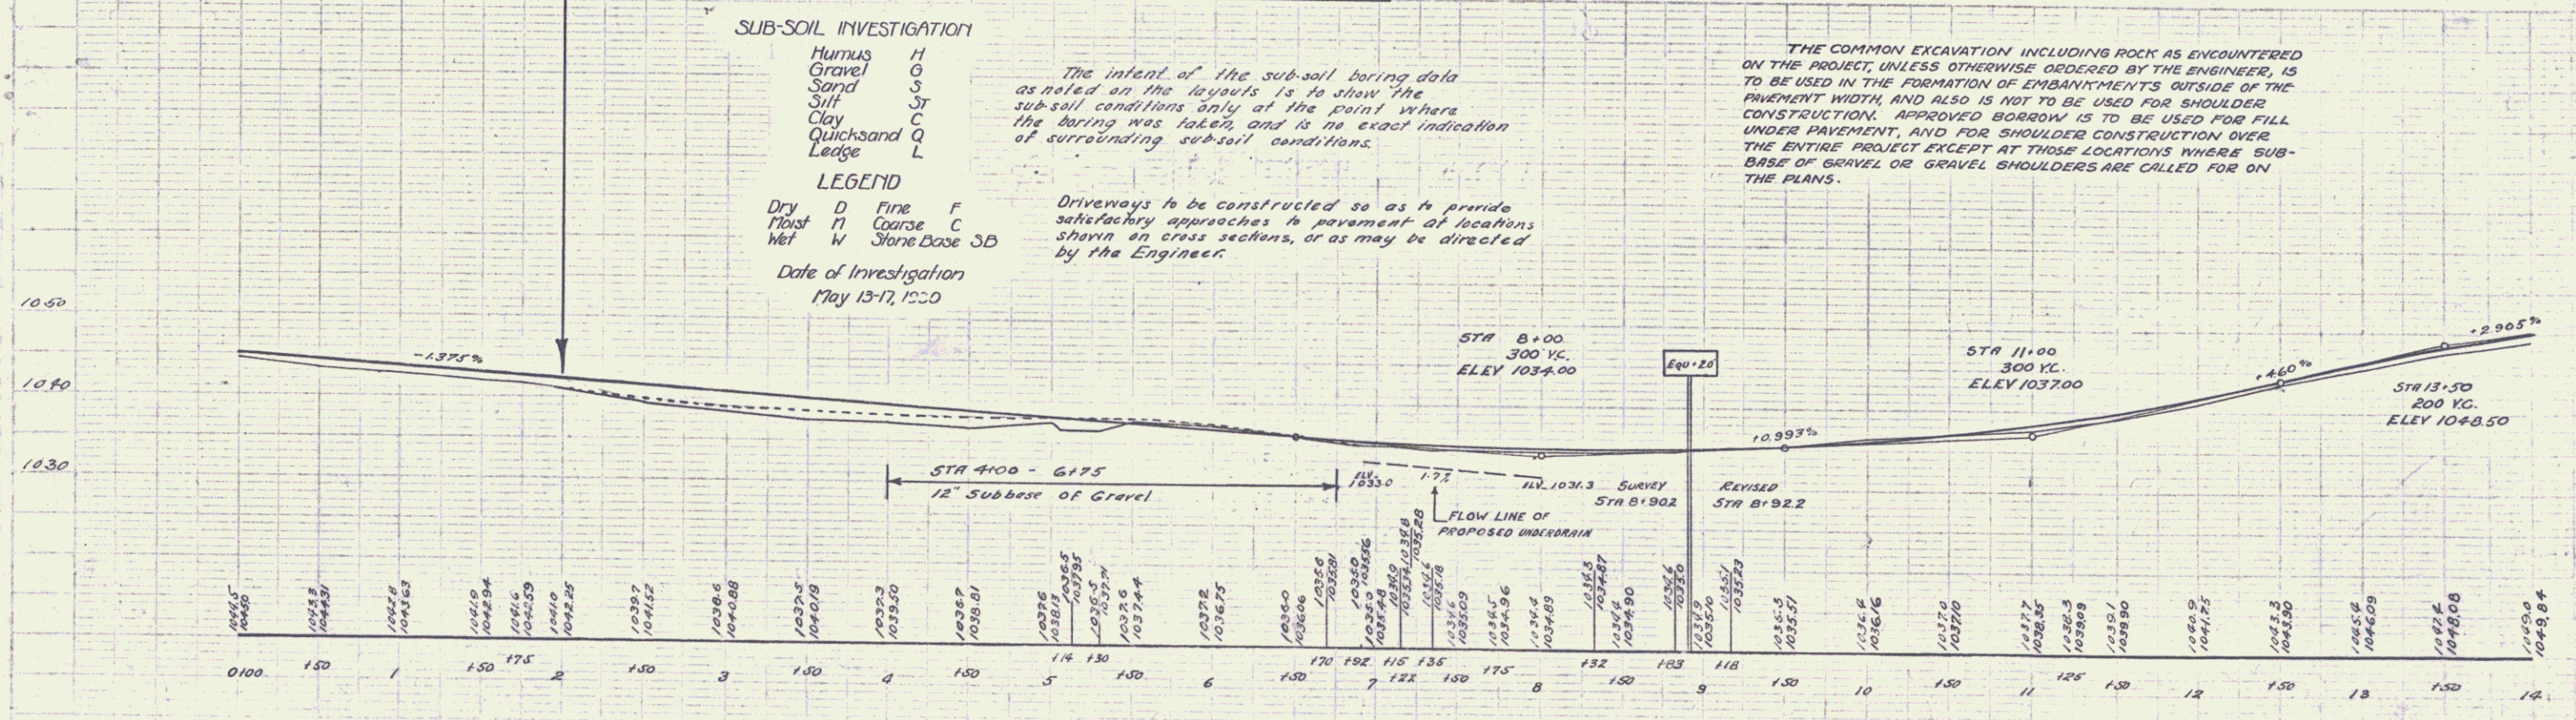 SUB-SOIL INVESTIGATION
Humus H
Gravel G
Sand S
Silt ST
Clay C
Quicksand Q
Ledge L
LEGEND
Dry D Fine F
Moist M Coarse C
Wet W Stone Base SB
Date of Investigation
May 13-17,
The intent of the sub-soil boring data
as noted on the layouts is to show the
sub-soil conditions only at the point where
the boring was taken, and is no exact indication
of surrounding sub-soil conditions.
Driveways to be constructed so as to provide
satisfactory approaches to pavement at locations
shown on cross sections, or as may be directed
by the Engineer.
THE COMMON EXCAVATION INCLUDING ROCK AS ENCOUNTERED
ON THE PROJECT, UNLESS OTHERWISE ORDERED BY THE ENGINEER, IS
TO BE USED IN THE FORMATION OF EMBANKMENTS OUTSIDE OF THE
PAVEMENT WIDTH, AND ALSO IS NOT TO BE USED FOR SHOULDER
CONSTRUCTION. APPROVED BORROW IS TO BE USED FOR FILL
UNDER PAVEMENT, AND FOR SHOULDER CONSTRUCTION OVER
THE ENTIRE PROJECT EXCEPT AT THOSE LOCATIONS WHERE SUB-
BASE OF GRAVEL OR GRAVEL SHOULDERS ARE CALLED FOR ON
THE PLANS.
1050
1040
1030
-1.375%
STA 8+00
300' V.C.
ELEV 1034.00
EQU+20
STA 11+00
300 V.C.
ELEV 1037.00
+2.905%
+4.60%
STA 13+50
200 V.C.
ELEV 1048.50
+0.993%
STA 4+00 - 6+75
12" Subbase OF Gravel
ELV.
1033.0
1.7%
ELV. 1031.3
FLOW LINE OF
PROPOSED UNDERDRAIN
SURVEY
STA 8+90.2
REVISED
STA 8+92.2
1044.5
1045.0
1043.3
1044.31
1042.8
1043.63
1041.9
1042.94
1041.6
1042.59
1041.0
1042.25
1039.7
1041.52
1038.6
1040.88
1037.5
1040.19
1037.3
1039.50
1036.7
1038.81
1037.6
1038.13
1036.5
1037.95
1036.5
1037.71
1037.6
1037.44
1037.2
1036.75
1036.0
1036.06
1035.6
1035.81
1035.0
1035.56
1035.0
1035.48
1034.9
1035.34
1034.8
1035.28
1034.6
1035.18
1034.6
1035.09
1034.5
1034.96
1034.4
1034.89
1034.3
1034.87
1034.4
1034.90
1034.6
1035.0
1034.9
1035.10
1035.1
1035.23
1035.3
1035.51
1036.4
1036.16
1037.0
1037.10
1037.7
1038.35
1038.3
1039.09
1039.1
1039.90
1040.9
1041.75
1043.3
1043.90
1045.4
1046.09
1047.4
1048.08
1049.0
1049.84
0+00 +50 1 +50 +75 2 +50 3 +50 4 +50 5 +14 +30 +50 6 +50 +70 +92 7 +15 +22 +35 +50 +75 8 +32 +50 +83 9 +18 +50 10 +50 11 +25 +50 12 +50 13 +50 14